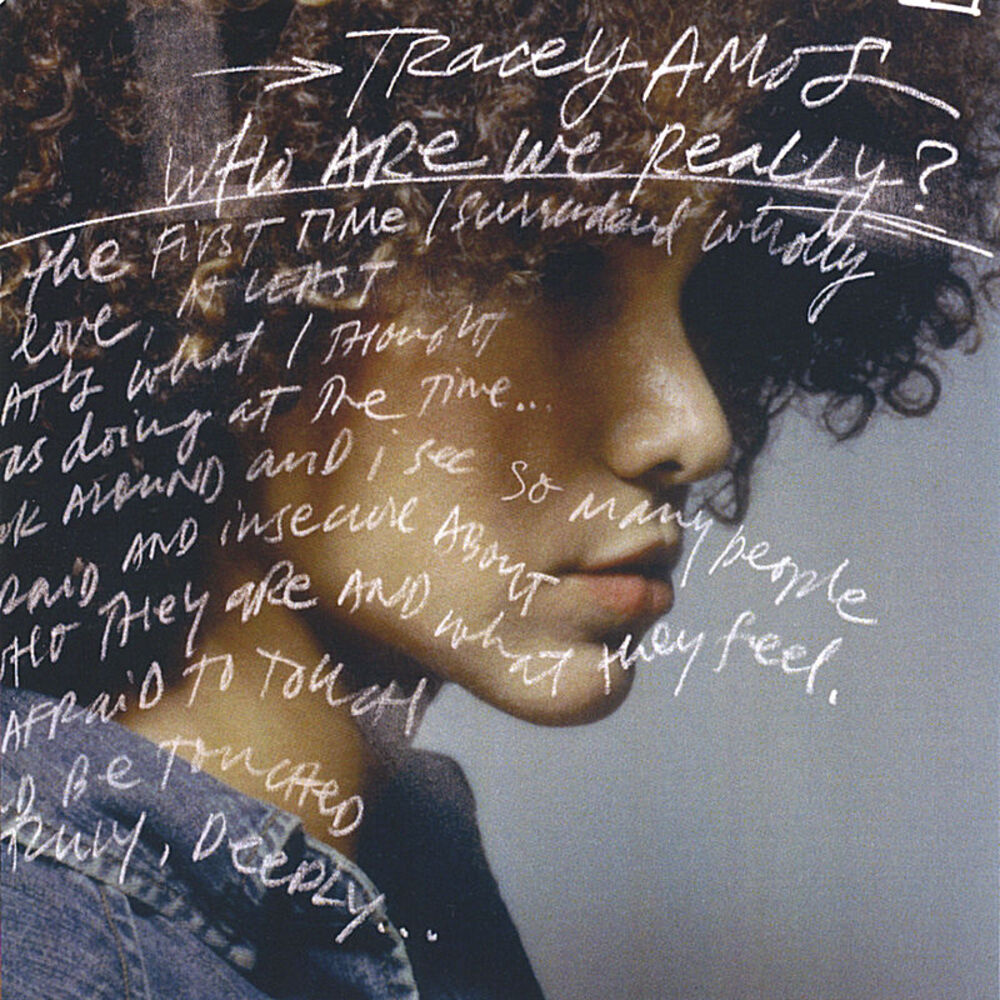 → TRacey AMOS
WHO ARe we Really?
the FIRST TIME I surrendered wholly
love, AT LEAST
what I THOUGHT
as doing at The Time...
AROUND and i see so many people
AND insecure ABOUT
THey aRe AND what they feel.
AFRaiD TO TOUCH
Be TOUCHED
TRuly, DeePLY...